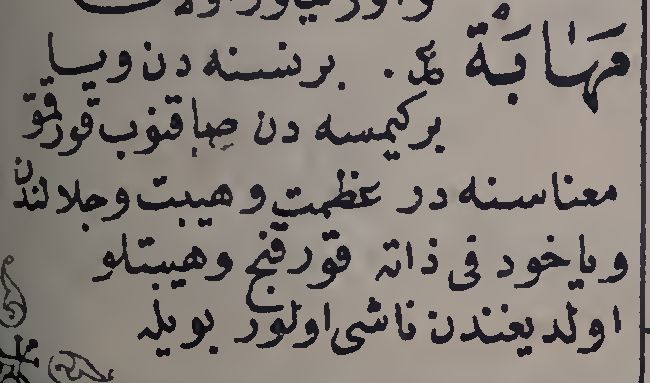 مَهَابَةٌ . برنسنه دن ويا
بركيمسه دن صاقنوب قورقمق
معناسنه در عظمت وهيبت وجلالندن
وياخود فى ذاته قورقنج وهيبتلو
اولديغندن ناشى اولور بويله